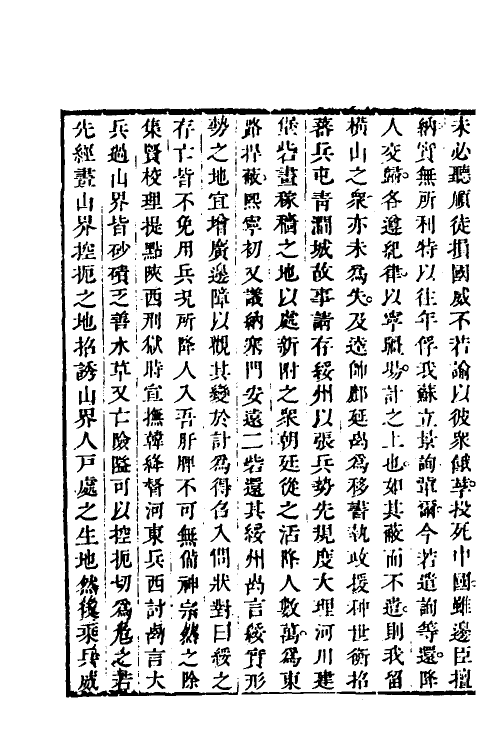 未必聽順徒損國威不若諭以彼衆餓莩投死中國雖邊臣擅
納實無所利特以往年俘我蘇立景詢輩爾今若遣詢等還降
人交歸各遵紀律以寧疆場計之上也如其蔽而不遣則我留
橫山之衆亦未爲失及逵帥鄜延卨爲移書執政援种世衡招
蕃兵屯青澗城故事請存綏州以張兵勢先規度大理河川建
堡砦畫稼穡之地以處新附之衆朝廷從之活降人數萬爲東
路捍蔽熙寧初又議納塞門安遠二砦還其綏州卨言綏實形
勢之地宜增廣邊障以觀其變於計爲得召入問狀對曰綏之
存亡皆不免用兵況所降人入吾肝脾不可無備神宗然之除
集賢校理提點陝西刑獄時宣撫韓絳督河東兵西討卨言大
兵過山界皆砂磧乏善水草又亡險隘可以控扼切爲危之若
先經畫山界控扼之地招誘山界人戶處之生地然後乘兵威